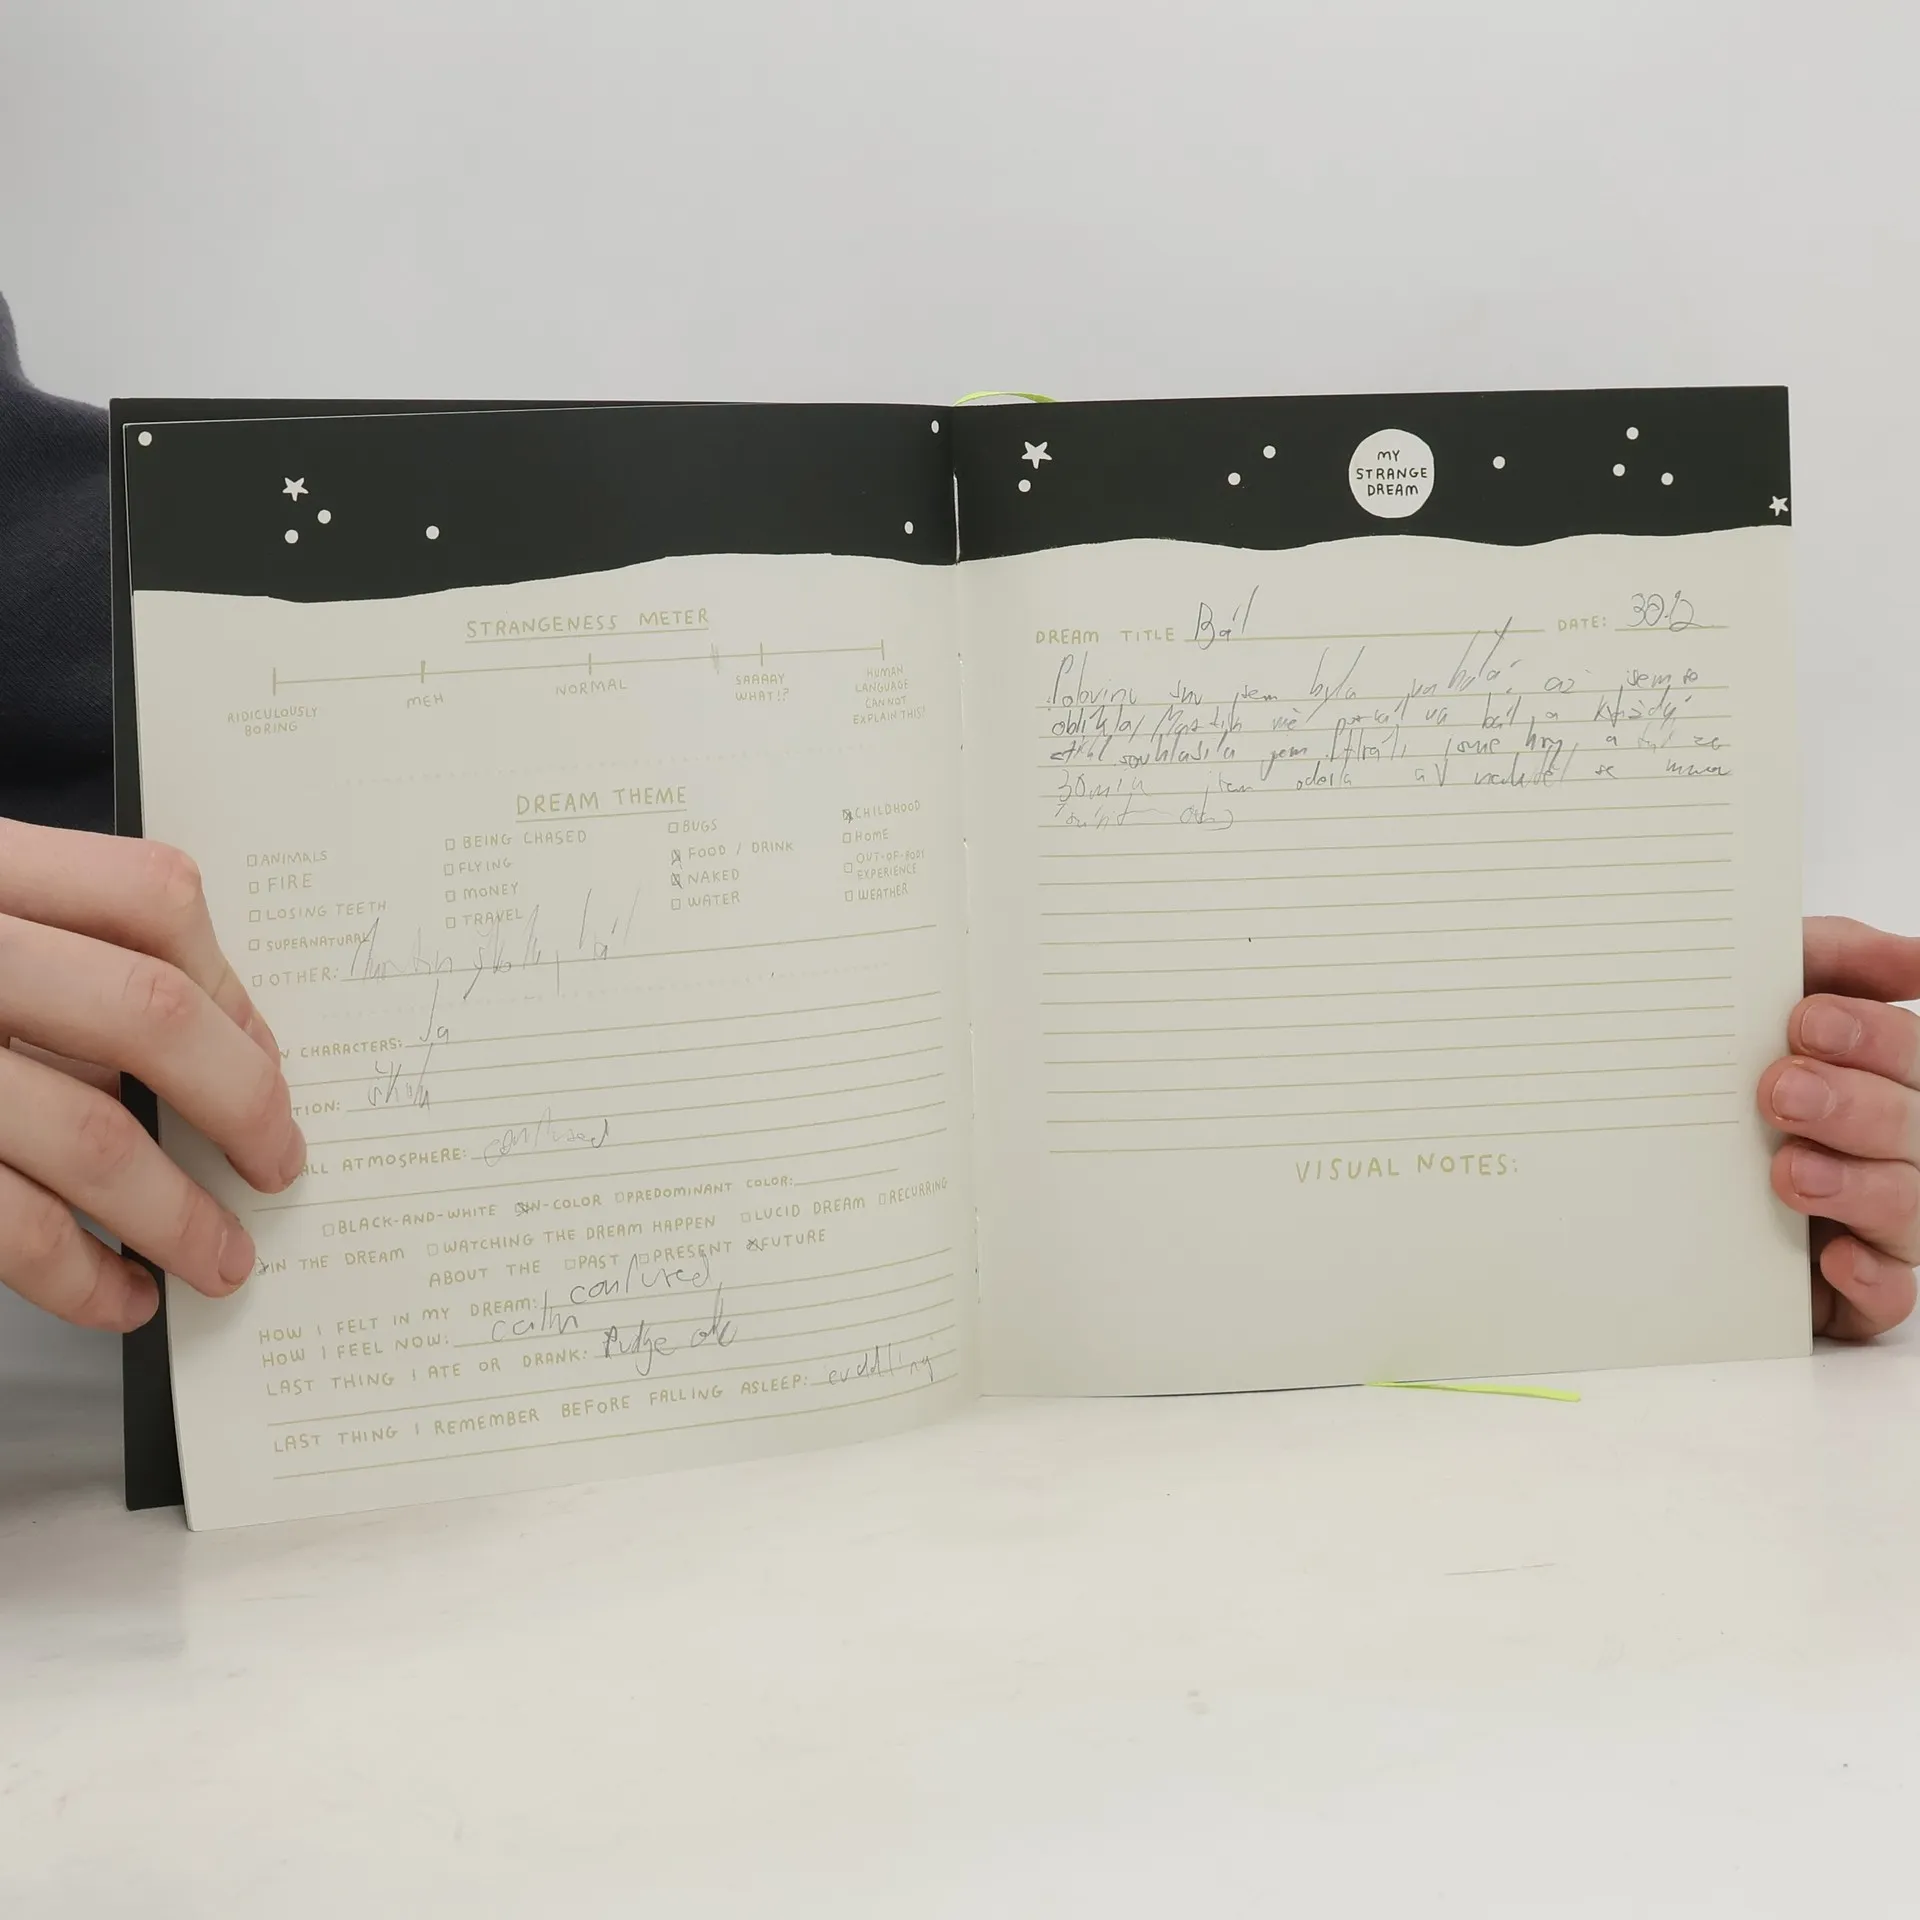 STRANGENESS METER
RIDICULOUSLY BORING
MEH
NORMAL
SAAAAY WHAT!?
HUMAN LANGUAGE CANNOT EXPLAIN THIS!
DREAM THEME
ANIMALS
FIRE
LOSING TEETH
SUPERNATURAL
BEING CHASED
FLYING
MONEY
TRAVEL
BUGS
FOOD / DRINK
NAKED
WATER
CHILDHOOD
HOME
OUT-OF-BODY EXPERIENCE
WEATHER
OTHER: bál
CHARACTERS: Já
TION: škola
ALL ATMOSPHERE: confused
BLACK-AND-WHITE IN-COLOR PREDOMINANT COLOR:
IN THE DREAM WATCHING THE DREAM HAPPEN LUCID DREAM RECURRING
ABOUT THE PAST PRESENT FUTURE
HOW I FELT IN MY DREAM: confused,
HOW I FEEL NOW: calm
LAST THING I ATE OR DRANK:
LAST THING I REMEMBER BEFORE FALLING ASLEEP: cuddling
MY STRANGE DREAM
DREAM TITLE Bál DATE: 30.12
Polovinu snu jsem byla nahá, až jsem se
oblíkla, mě na bál, a
souhlasila jsem jsme hry, a ze
30min jsem odešla a se
VISUAL NOTES: